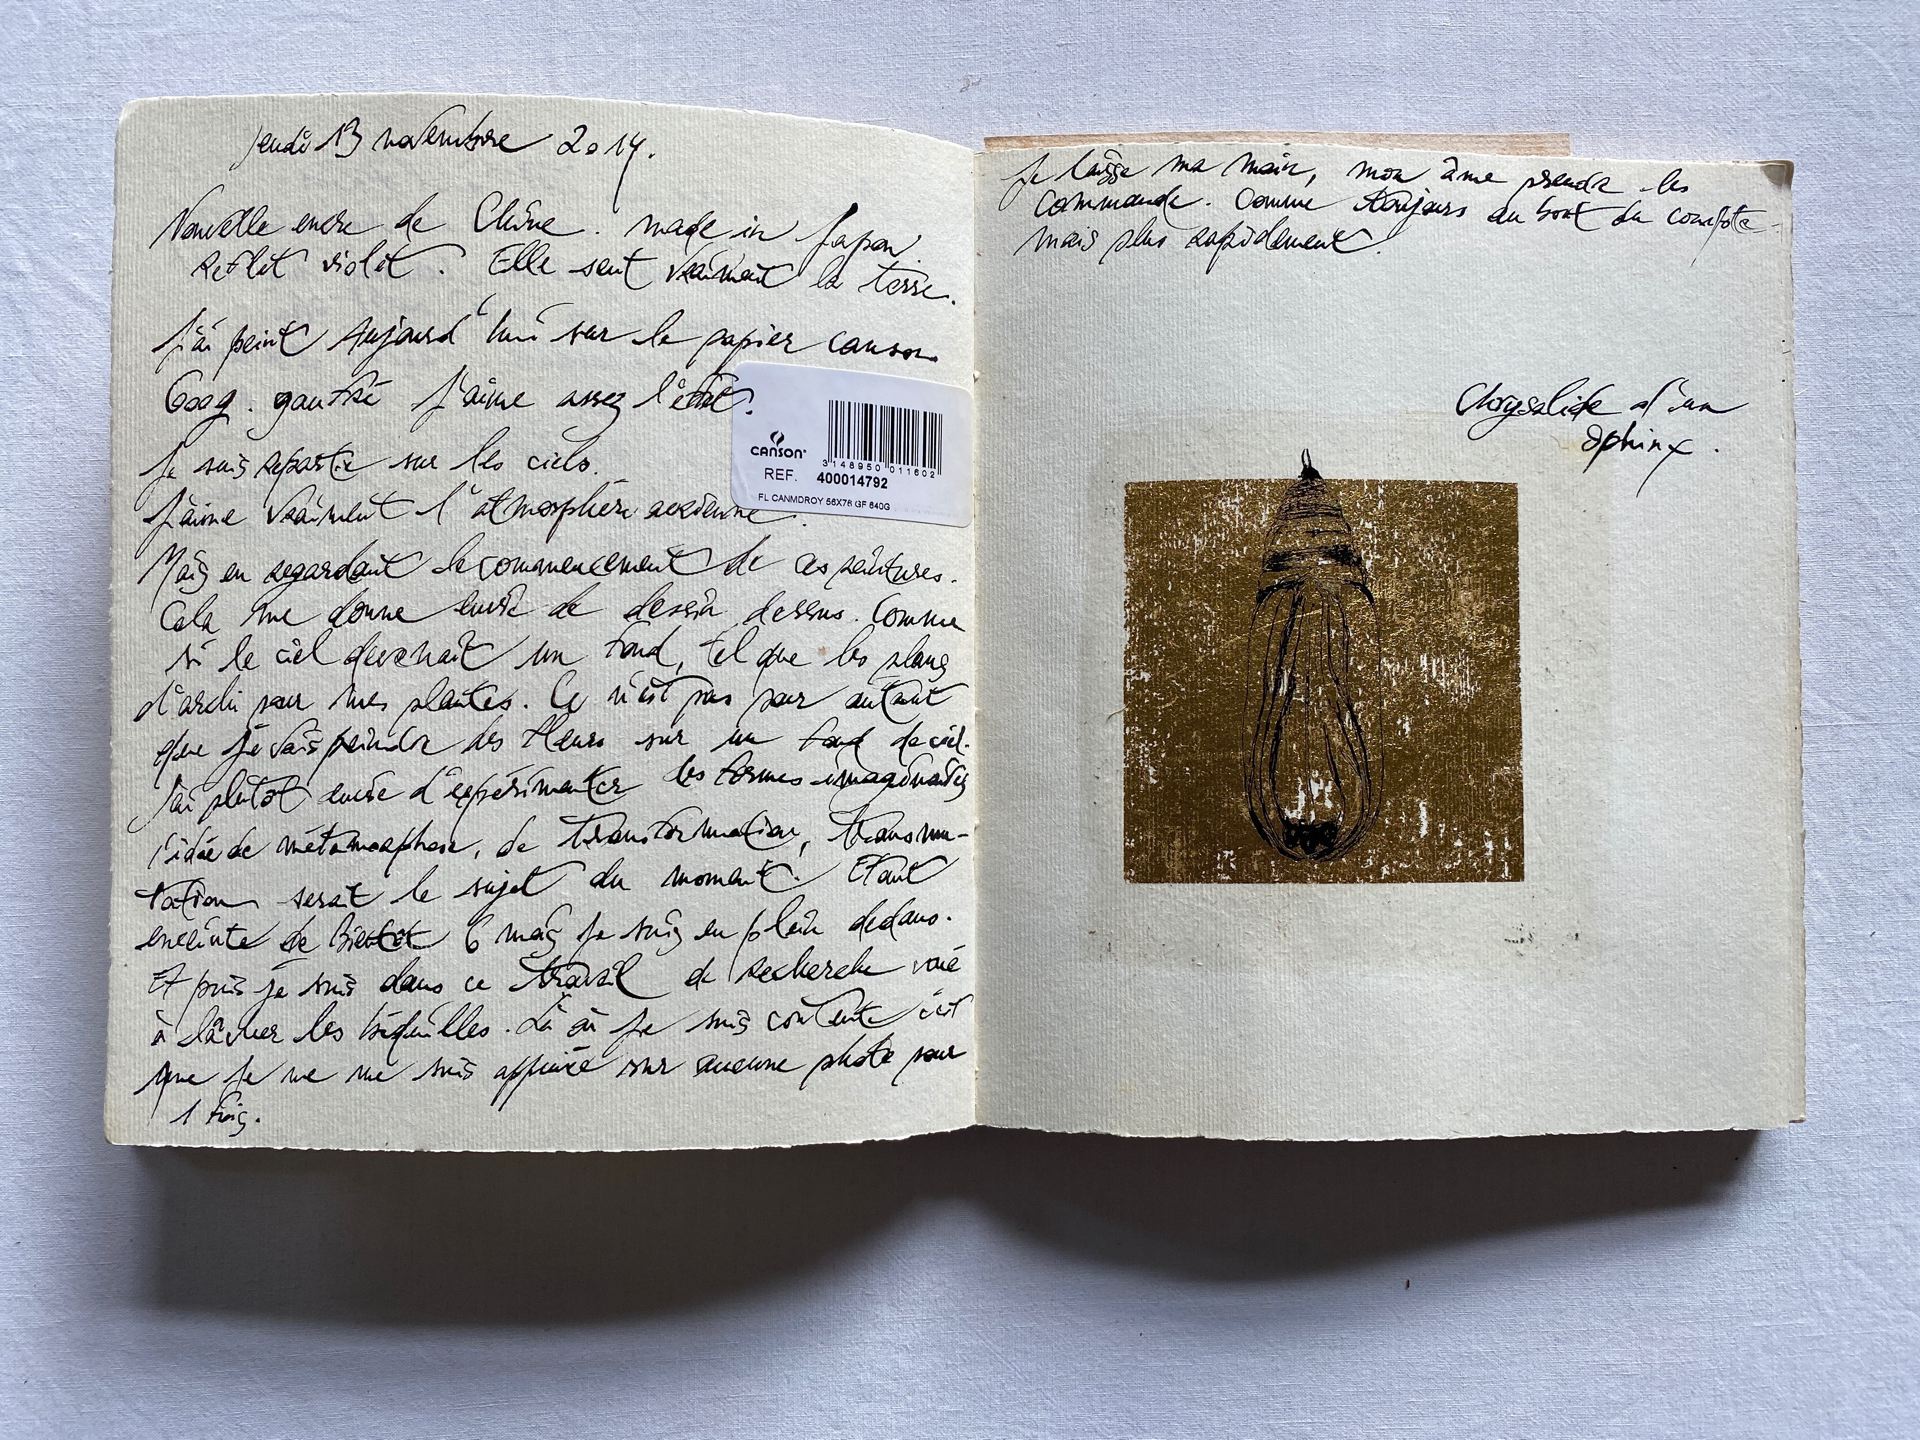 Jeudi 13 novembre 2014.
Nouvelle encre de Chine. made in Japon.
Reflet violet. Elle sent vraiment la terre.
J'ai peint Aujourd'hui sur le papier canson
600g. gauffré J'aime assez l'effet.
Je suis repartie sur les ciels.
J'aime vraiment l'atmosphère aérienne.
CANSON
3 148950 011602
REF. 400014792
FL CANMDROY 56X76 GF 640G
Mais en regardant le commencement de ces peintures.
Cela me donne envie de dessin dessus. Comme
si le ciel devenait un fond, tel que les plans
d'archi pour mes plantes. Ce n'est pas pour autant
que je vais peindre des fleurs sur un fond de ciel.
J'ai plutôt envie d'expérimenter des formes imaginaires
l'idée de métamorphose, de transformation, transmu-
tation serait le sujet du moment. Etant
enceinte de Bientôt 6 mois je suis en plein dedans.
Et puis je suis dans ce travail de recherche voué
à lâcher les béquilles. Là où je suis contente c'est
que je ne me suis appuiée sur aucune photo pour
1 fois.
Je laisse ma main, mon âme prendre les
commande. Comme toujours au bout du compte
mais plus rapidement.
Chrysalide d'un
sphinx.